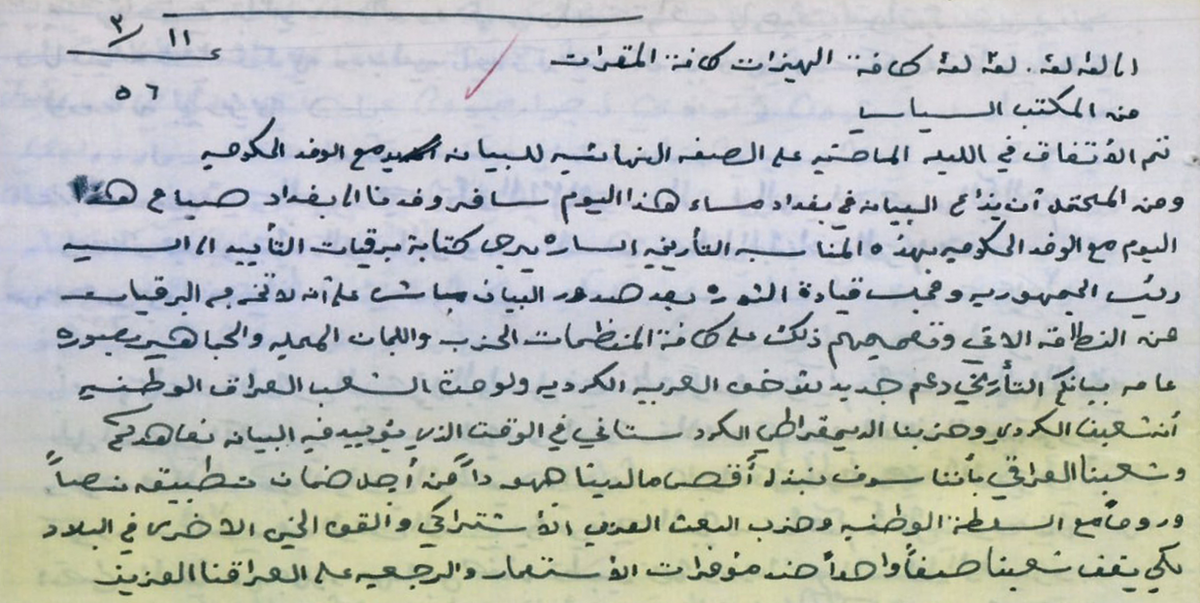 ١١/٣
٥٦
كافة الهيزات كافة المقرات
من المكتب السياسي
تم الأتفاق في الليله الماضيه على الصيغه النهائيه للبيان مع الوفد الحكومي
ومن المحتمل أن يذاع البيان في بغداد مساء هذا اليوم سافر وفدنا الى بغداد صباح هذا
اليوم مع الوفد الحكومي بهذه المناسبه التأريخيه الساره يرجى كتابة برقيات التأييد الى السيد
رئيس الجمهوريه ومجلس قيادة الثوره بعد صدور البيان مباشره على ان لا تخرج البرقيات
عن النطاق الاتي وتعميم ذلك على كافة المنظمات الحزب واللجان المحليه والجماهير بصوره
عامه بيانكم التأريخي دعم جديد للأخوه العربيه الكرديه ولوحدة الشعب العراق الوطنيه
أن شعبنا الكردي وحزبنا الديمقراطي الكردستاني في الوقت الذي يؤييد فيه البيان نعاهدكم
وشعبنا العراقي بأننا سوف نبذل أقصى مالدينا جهوداً من أجل ضمان تطبيقه نصاً
وروحاً مع السلطة الوطنيه وحزب البعث العربي الأشتراكي والقوى الخيره الاخرى في البلاد
لكي يقف شعبنا صفاً واحداً ضد مؤمرات الأستعمار والرجعيه على العراقنا العزيز